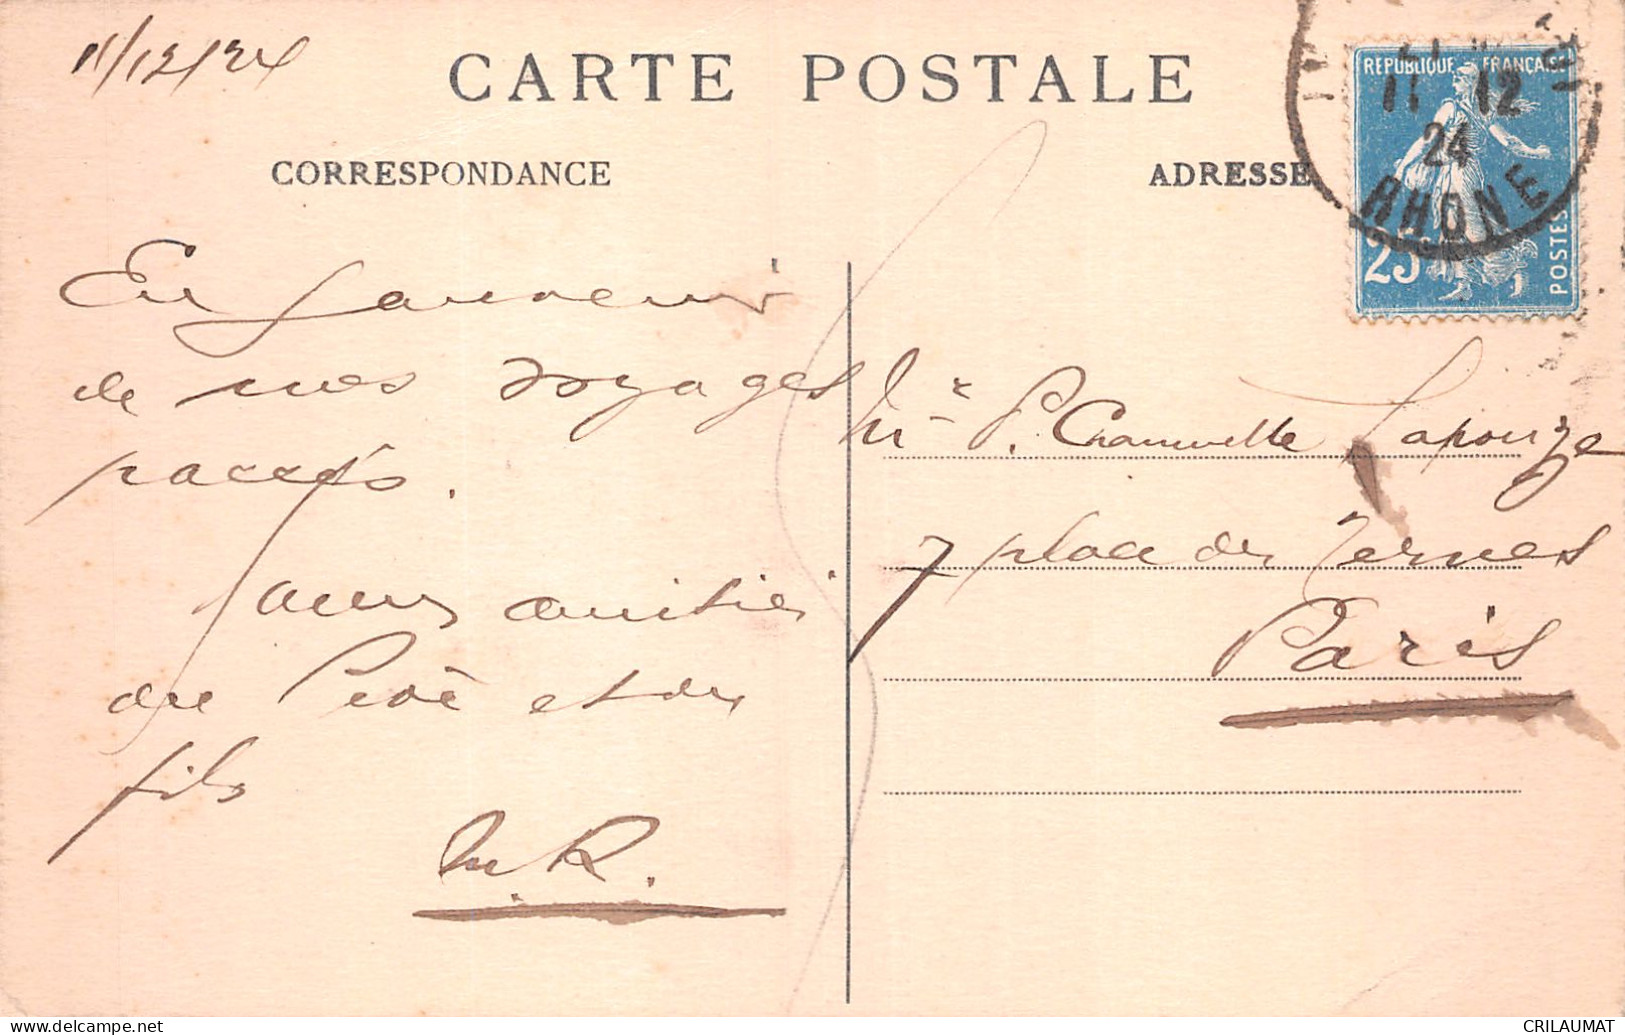 11/12/24
CARTE POSTALE
CORRESPONDANCE
ADRESSE
REPUBLIQUE FRANÇAISE
11 12
24
RHONE
25
POSTES
En souvenir
de nos voyages
passés.
amitiés
du Père et du
fils
M. R.
Mr P. Lapouze
7 place des Ternes
Paris
CRILAUMAT